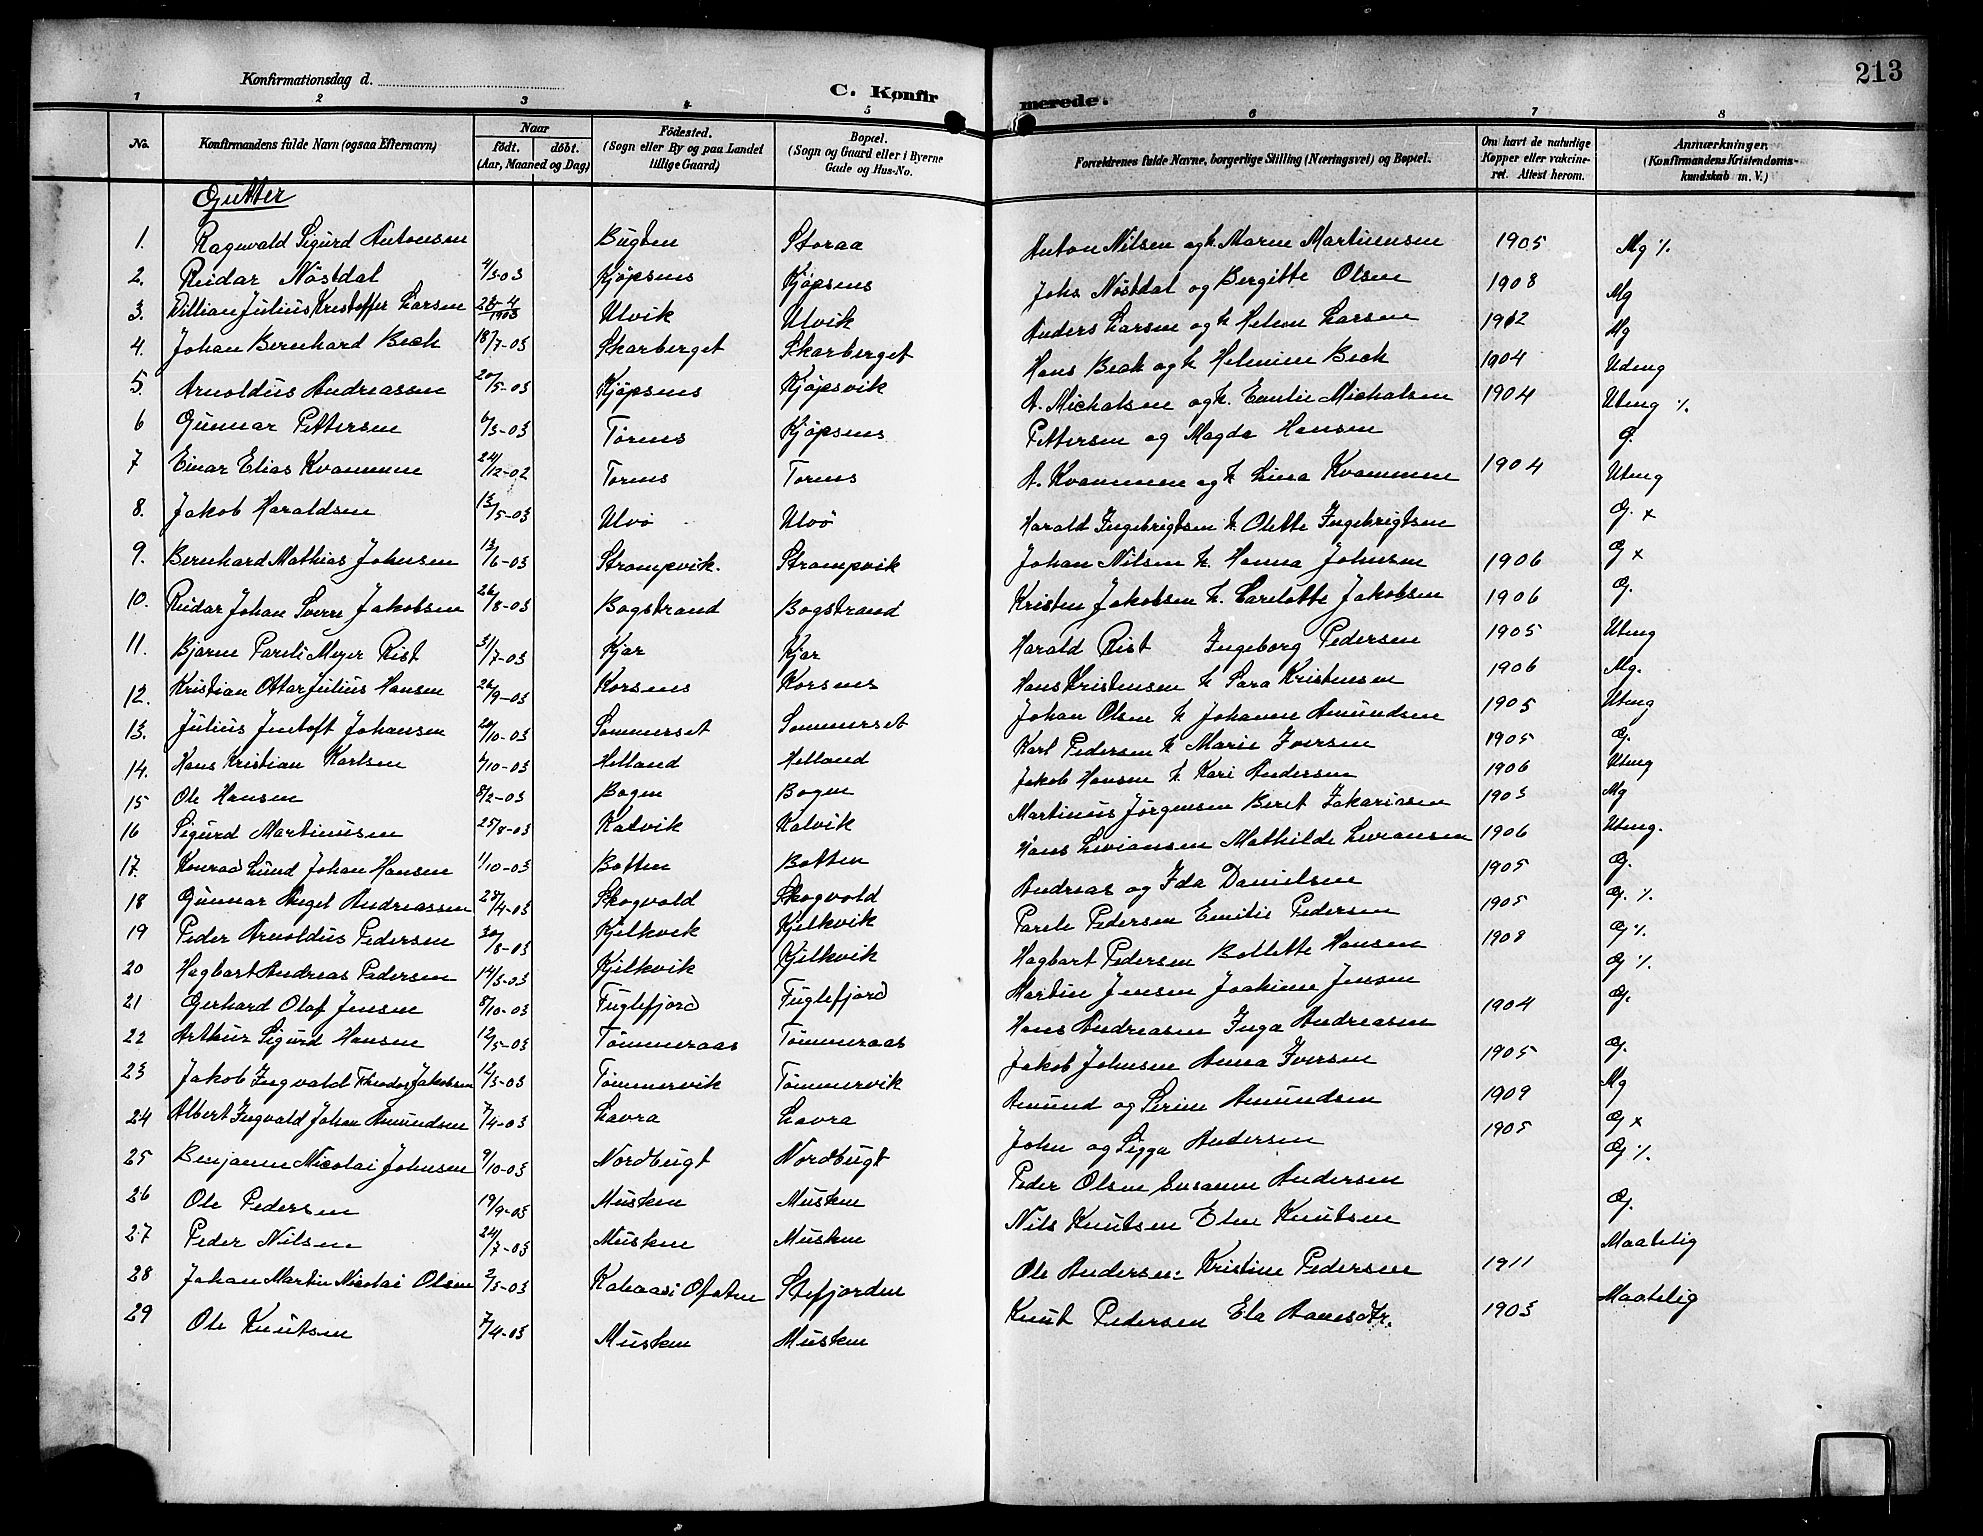 213
Konfirmationsdag d.
C. Konfirmerede.
1 2 3 4 5 6 7 8
No. Konfirmandens fulde Navn (ogsaa Efternavn) Naar født. døbt. (Aar, Maaned og Dag) Fødested. (Sogn eller By og paa Landet tillige Gaard) Bopæl. (Sogn og Gaard eller i Byerne Gade og Hus-No. Forældrenes fulde Navne, borgerlige Stilling (Næringsvei) og Bopæl. Om havt de naturlige Kopper eller vakcineret. Attest herom. Anmærkninger. (Konfirmandens Kristendomskundskab m. V.)
Gutter
1. Ragnvald Sigurd Antonsen Bugten Storaa Anton Nilsen og h. Maren Martinensen 1905 Mg %
2. Reidar Nøstdal 4/3-03 Kjøpsnes Kjøpsnes Johs Nøstdal og Bergitte Olsen 1908 Mg
3. Villian Julius Kristoffer Larsen 28-4/1903 Ulvik Ulvik Anders Larsen og h Helene Larsen 1912 Mg
4. Johan Bernhard Beck 18/7-03 Skarberget Skarberget Hans Beck og h Helmine Beck 1904 Utmg
5. Arnoldus Andreassen 20/5-03 Kjøpsnes Kjøpsvik A. Michalsen og h. Emilie Michalsen 1904 Utmg %
6 Gunnar Pettersen 6/3-03 Tørnes Kjøpsnes Pettersen og Magda Hansen G.
7 Einar Elias Kvammen 24/12-02 Tornes Tornes A. Kvammen og h Lina Kvammen 1904 Utmg
8. Jakob Haraldsen 13/5-03 Ulvø Ulvö Harald Ingebrigtsen h. Olette Ingebrigtsen G. x
9. Bernhard Mathias Johnsen 13/6-03 Strompvik. Strompvik Johan Nilsen h. Hanna Johnsen 1906 G x
10. Reidar Johan Sverre Jakobsen 26/8-03 Bogstrand Bogstrand Kristen Jakobsen h. Carelotte Jakobsen 1906 G.
11. Bjarne Pareli Meyer Rist 31/7-03 Kjar Kjar Harald Rist Ingeborg Pedersen 1905 Utmg
12. Kristian Ottar Julius Hansen 26/9-03 Korsnes Korsnes Hans Kristensen h Sara Kristensen 1906 Mg.
13. Julius Jentoft Johansen 20/10-03 Sommerset Sommerset Johan Olsen h Johanne Amundsen 1905 Utmg
14. Hans Kristian Karlsen 7/10-03 Helland Helland Karl Pedersen h Marie Iversen 1905 G.
15 Ole Hansen 8/2-03 Bogen Bogen Jakob Hansen h. Kari Andersen 1906 Utmg
16 Sigurd Martinusen 25/8-03 Kalvik Kalvik Martinus Jørgensen Beret Zakariasen 1903 Mg
17. Konrad Lund Johan Hansen 1/10-03 Botten Botten Hans Leviansen Mathilde Leviansen 1906 Utmg.
18 Gunnar Angel Andreassen 28/4-03 Skogvold Skogvold Andreas og Ida Danielsen 1905 G.
19 Peder Arnoldus Pedersen 30/8-03 Kjelkvik Kjelkvik Parele Pedersen Emilie Pedersen 1905 G. %
20 Hagbart Andreas Pedersen 14/5-03 Kjelkvik Kjelkvik Hagbart Pedersen Bollette Hansen 1908 G %
21 Gerhard Olaf Jensen 8/10-03 Fuglefjord Fuglefjord Martin Jensen Joakime Jenson G %
22 Arthur Sigurd Hansen 12/5-03 Tömmeraas Tömmeraas Hans Andreasen Inga Andreasen 1904 G.
23 Jakob Ingvald Theodor Jakobsen 12/3-03 Tömmervik Tömmervik Jakob Johnsen Anna Iversen 1905 G.
24 Albert Ingvald Johan Amundsen 7/4-03 Lavra Lavra Amund og Serine Amundsen 1909 Mg
25 Benjamin Nicolai Johnsen 9/10-03 Nordbugt Nordbugt John og Sigga Andersen 1905 G x
26 Ole Pedersen 19/9-03 Musken Musken Peder Olsen Susanne Andersen G %
27 Peder Nilsen 24/7-03 Musken Musken Nils Knutsen Elen Knutsen G.
28 Johan Martin Nicolai Olsen 2/3-03 Kahaasi Ofoten Stefjorden Ole Andersen Kristine Pedersen 1911 Maatelig
29 Ole Knutsen 7/4-03 Musken Musken Knut Pedersen Ela Hansdtr. 1903 Maatelig